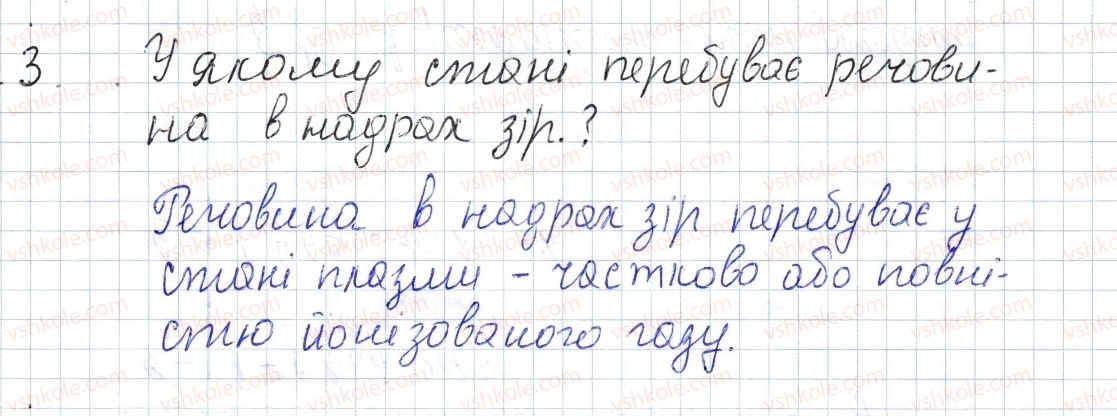 3 У якому стані перебуває речови-
на в надрах зір.?
Речовина в надрах зір перебуває у
стані плазми - частково або повні-
стю йонізованого газу.